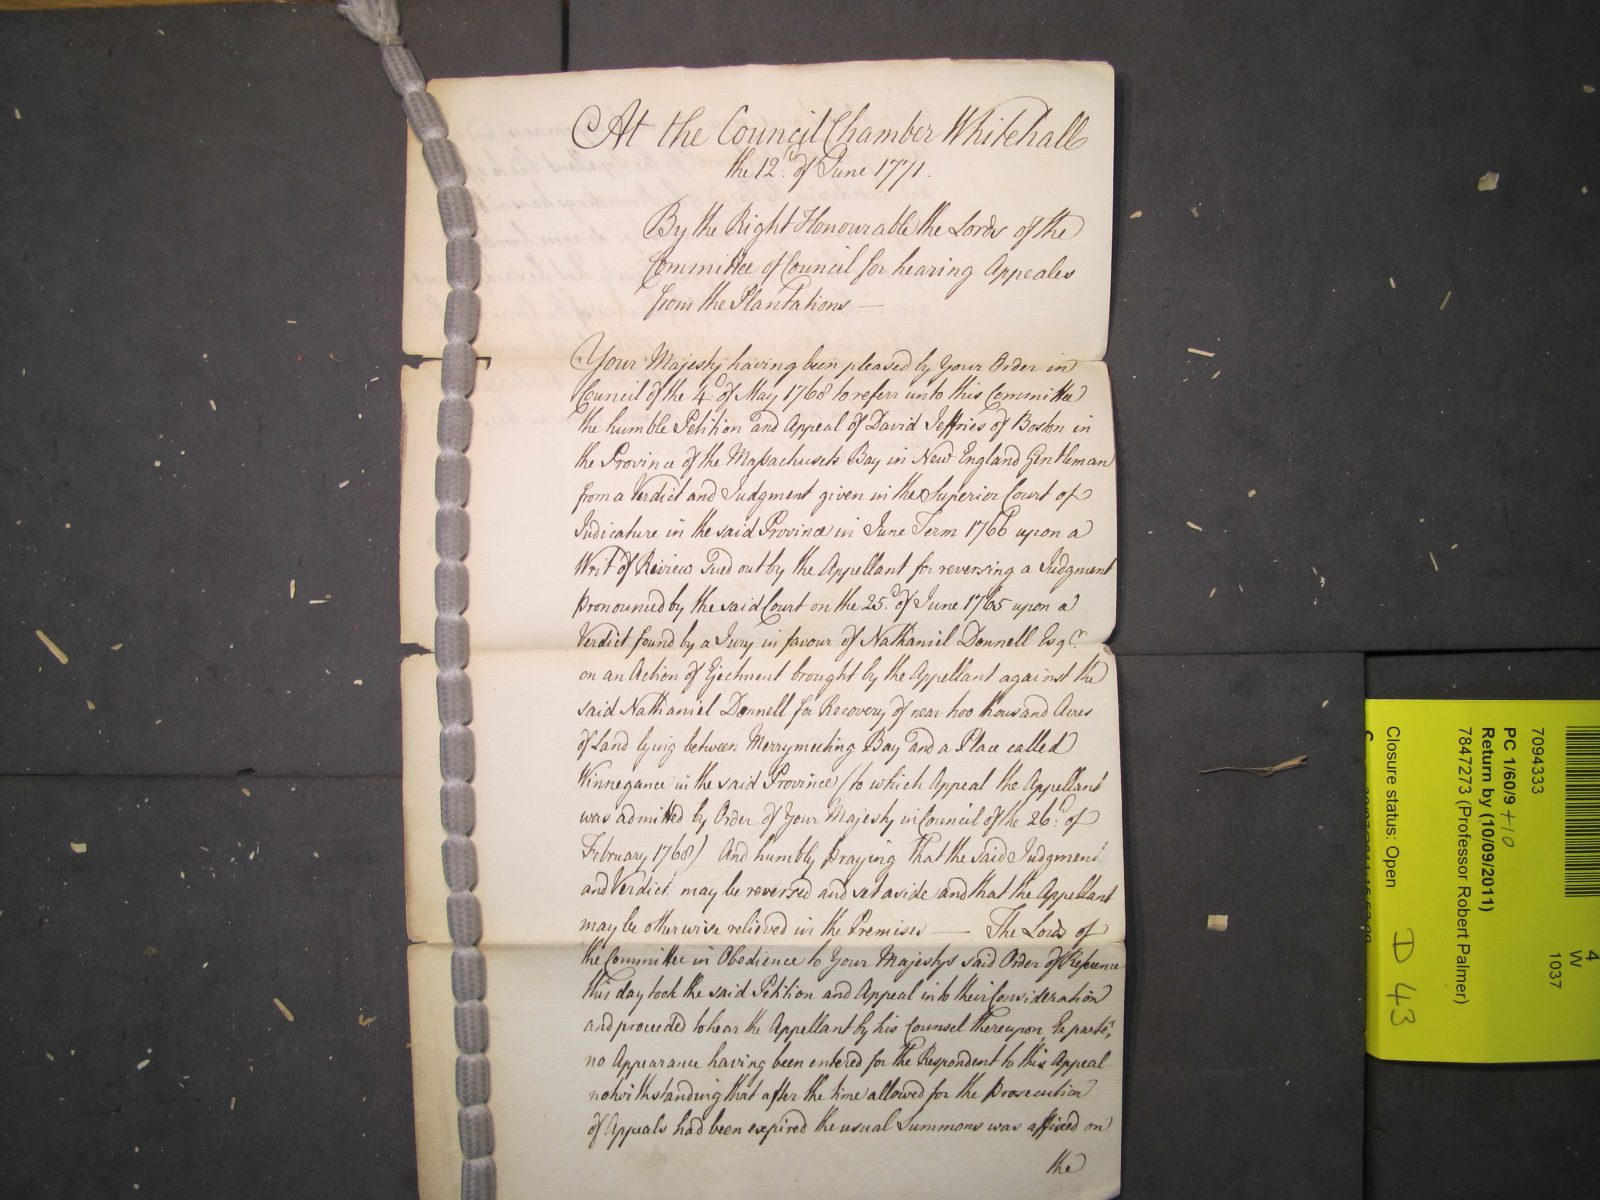 At the Council Chamber Whitehall
the 12.th of June 1771.
By the Right Honourable the Lords of the
Committee of Council for hearing Appeales
from the Plantations —
Your Majesty having been pleased by Your Order in
Council of the 4th of May 1768 to referr unto this Committee
the humble Petition and Appeal of David Jeffries of Boston in
the Province of the Massachusets Bay in New England Gentleman
from a Verdict and Judgment given in the Superior Court of
Judicature in the said Province in June Term 1766 upon a
Writ of Review Sued out by the Appellant for reversing a Judgment
pronounced by the said Court on the 25.th of June 1765 upon a
Verdict found by a Jury in favour of Nathaniel Donnell Esq.r
on an Action of Ejectment brought by the Appellant against the
said Nathaniel Donnell for Recovery of near two thousand Acres
of Land lying between Merrymeeting Bay and a Place called
Winnegance in the said Province (to which Appeal the Appellant
was admitted by Order of Your Majesty in Council of the 26.th of
February 1768) And humbly praying That the said Judgment
and Verdict may be reversed and set aside and that the Appellant
may be otherwise relieved in the Premises — The Lords of
the Committee in Obedience to Your Majestys said Order of Reference
this day took the said Petition and Appeal into their Consideration
and proceeded to hear the Appellant by his Counsel thereupon Ex parte,
no Appearance having been entered for the Respondent to this Appeal
notwithstanding that after the time allowed for the Prosecution
of Appeals had been expired the usual Summons was affixed on
the
7094333
PC 1/60/9 +10
Return by (10/09/2011)
7847273 (Professor Robert Palmer)
Closure status: Open
4
W
1037
D 43